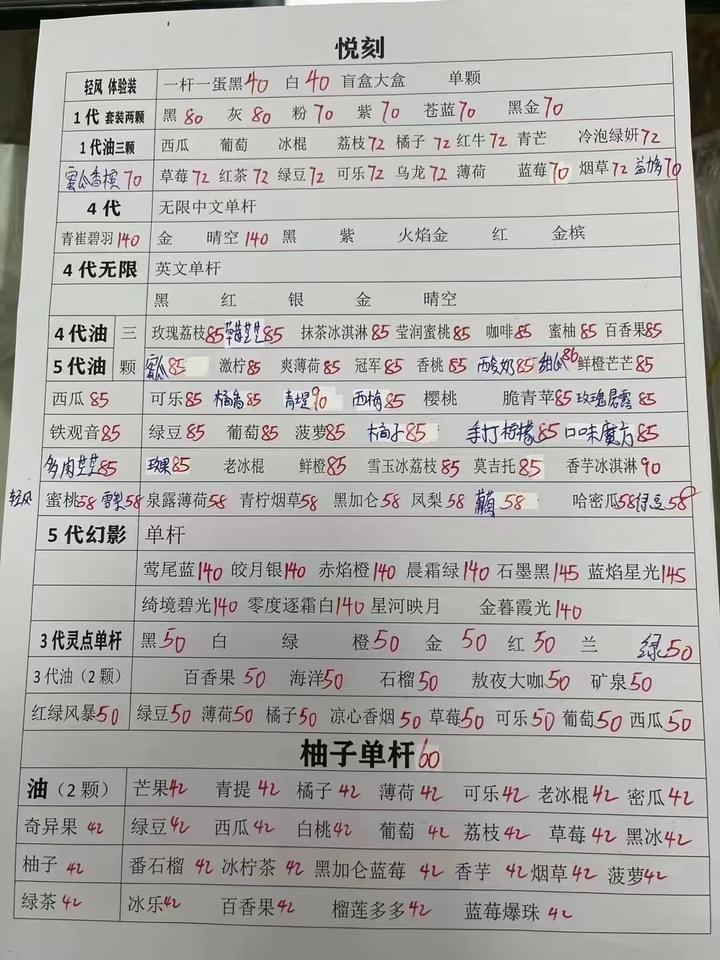 悦刻
轻风 体验装 一杆一蛋黑40 白40 盲盒大盒 单颗
1代 套装两颗 黑80 灰80 粉70 紫70 苍蓝70 黑金70
1代油三颗 西瓜 葡萄 冰棍 荔枝72 橘子72 红牛72 青芒 冷泡绿妍72
70 草莓72 红茶72 绿豆72 可乐72 乌龙72 薄荷 蓝莓70 烟草72 70
4代 无限中文单杆
青崔碧羽140 金 晴空140 黑 紫 火焰金 红 金槟
4代无限 英文单杆
黑 红 银 金 晴空
4代油 三 玫瑰荔枝85 草莓芝芝85 抹茶冰淇淋85 莹润蜜桃85 咖啡85 蜜柚85 百香果85
5代油 颗 蜜瓜85 激柠85 爽薄荷85 冠军85 香桃85 西酸奶85 甜瓜86 鲜橙芒芒85
西瓜85 可乐85 85 青堤90 西柚85 樱桃 脆青苹85 85
铁观音85 绿豆85 葡萄85 菠萝85 橘子85 手打柠檬85 口味魔方85
多肉芝芝85 85 老冰棍 鲜橙85 雪玉冰荔枝85 莫吉托85 香芋冰淇淋90
轻风 蜜桃58 雪梨58 泉露薄荷58 青柠烟草58 黑加仑58 凤梨58 58 哈密瓜58 绿豆58
5代幻影 单杆
莺尾蓝140 皎月银140 赤焰橙140 晨霜绿140 石墨黑145 蓝焰星光145
绮境碧光140 零度逐霜白140 星河映月 金暮霞光140
3代灵点单杆 黑50 白 绿 橙50 金50 红50 兰 绿50
3代油（2颗） 百香果50 海洋50 石榴50 敖夜大咖50 矿泉50
红绿风暴50 绿豆50 薄荷50 橘子50 凉心香烟50 草莓50 可乐50 葡萄50 西瓜50
柚子单杆60
油（2颗） 芒果42 青提42 橘子42 薄荷42 可乐42 老冰棍42 密瓜42
奇异果42 绿豆42 西瓜42 白桃42 葡萄42 荔枝42 草莓42 黑冰42
柚子42 番石榴42 冰柠茶42 黑加仑蓝莓42 香芋42 烟草42 菠萝42
绿茶42 冰乐42 百香果42 榴莲多多42 蓝莓爆珠42